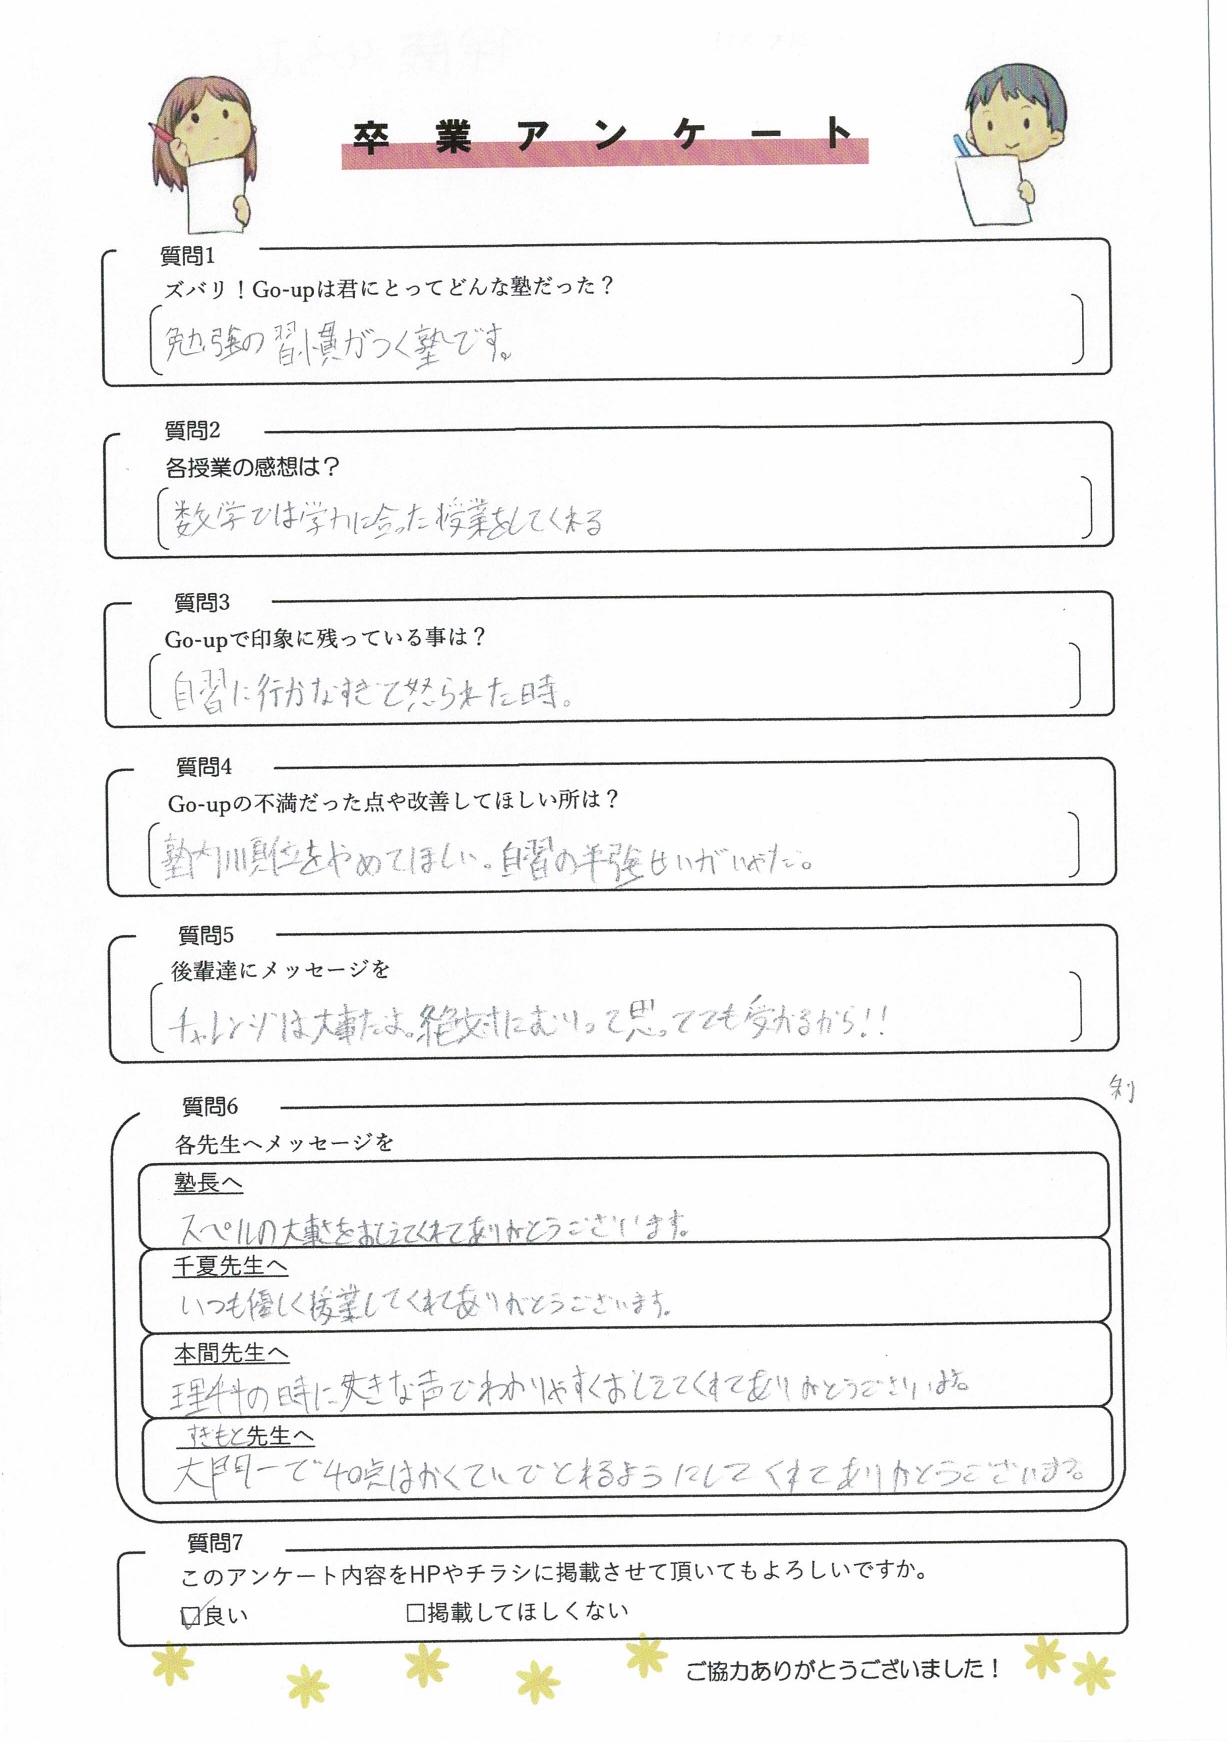 卒業アンケート
質問1
ズバリ！Go-upは君にとってどんな塾だった？
勉強の習慣がつく塾です。
質問2
各授業の感想は？
数学では学力に合った授業をしてくれる
質問3
Go-upで印象に残っている事は？
自習に行かなすぎて怒られた時。
質問4
Go-upの不満だった点や改善してほしい所は？
塾内順位をやめてほしい。自習の半強せいがいやだ。
質問5
後輩達にメッセージを
チャレンジは大事だよ。絶対にむりって思ってても受かるから!!
質問6
各先生へメッセージを
塾長へ
スペルの大事さをおしえてくれてありがとうございます。
千夏先生へ
いつも優しく授業してくれてありがとうございます。
本間先生へ
理科の時に大きな声でわかりやすくおしえてくれてありがとうございます。
すぎもと先生へ
で40点はかくていでとれるようにしてくれてありがとうございます。
質問7
このアンケート内容をHPやチラシに掲載させて頂いてもよろしいですか。
☑良い □掲載してほしくない
ご協力ありがとうございました！